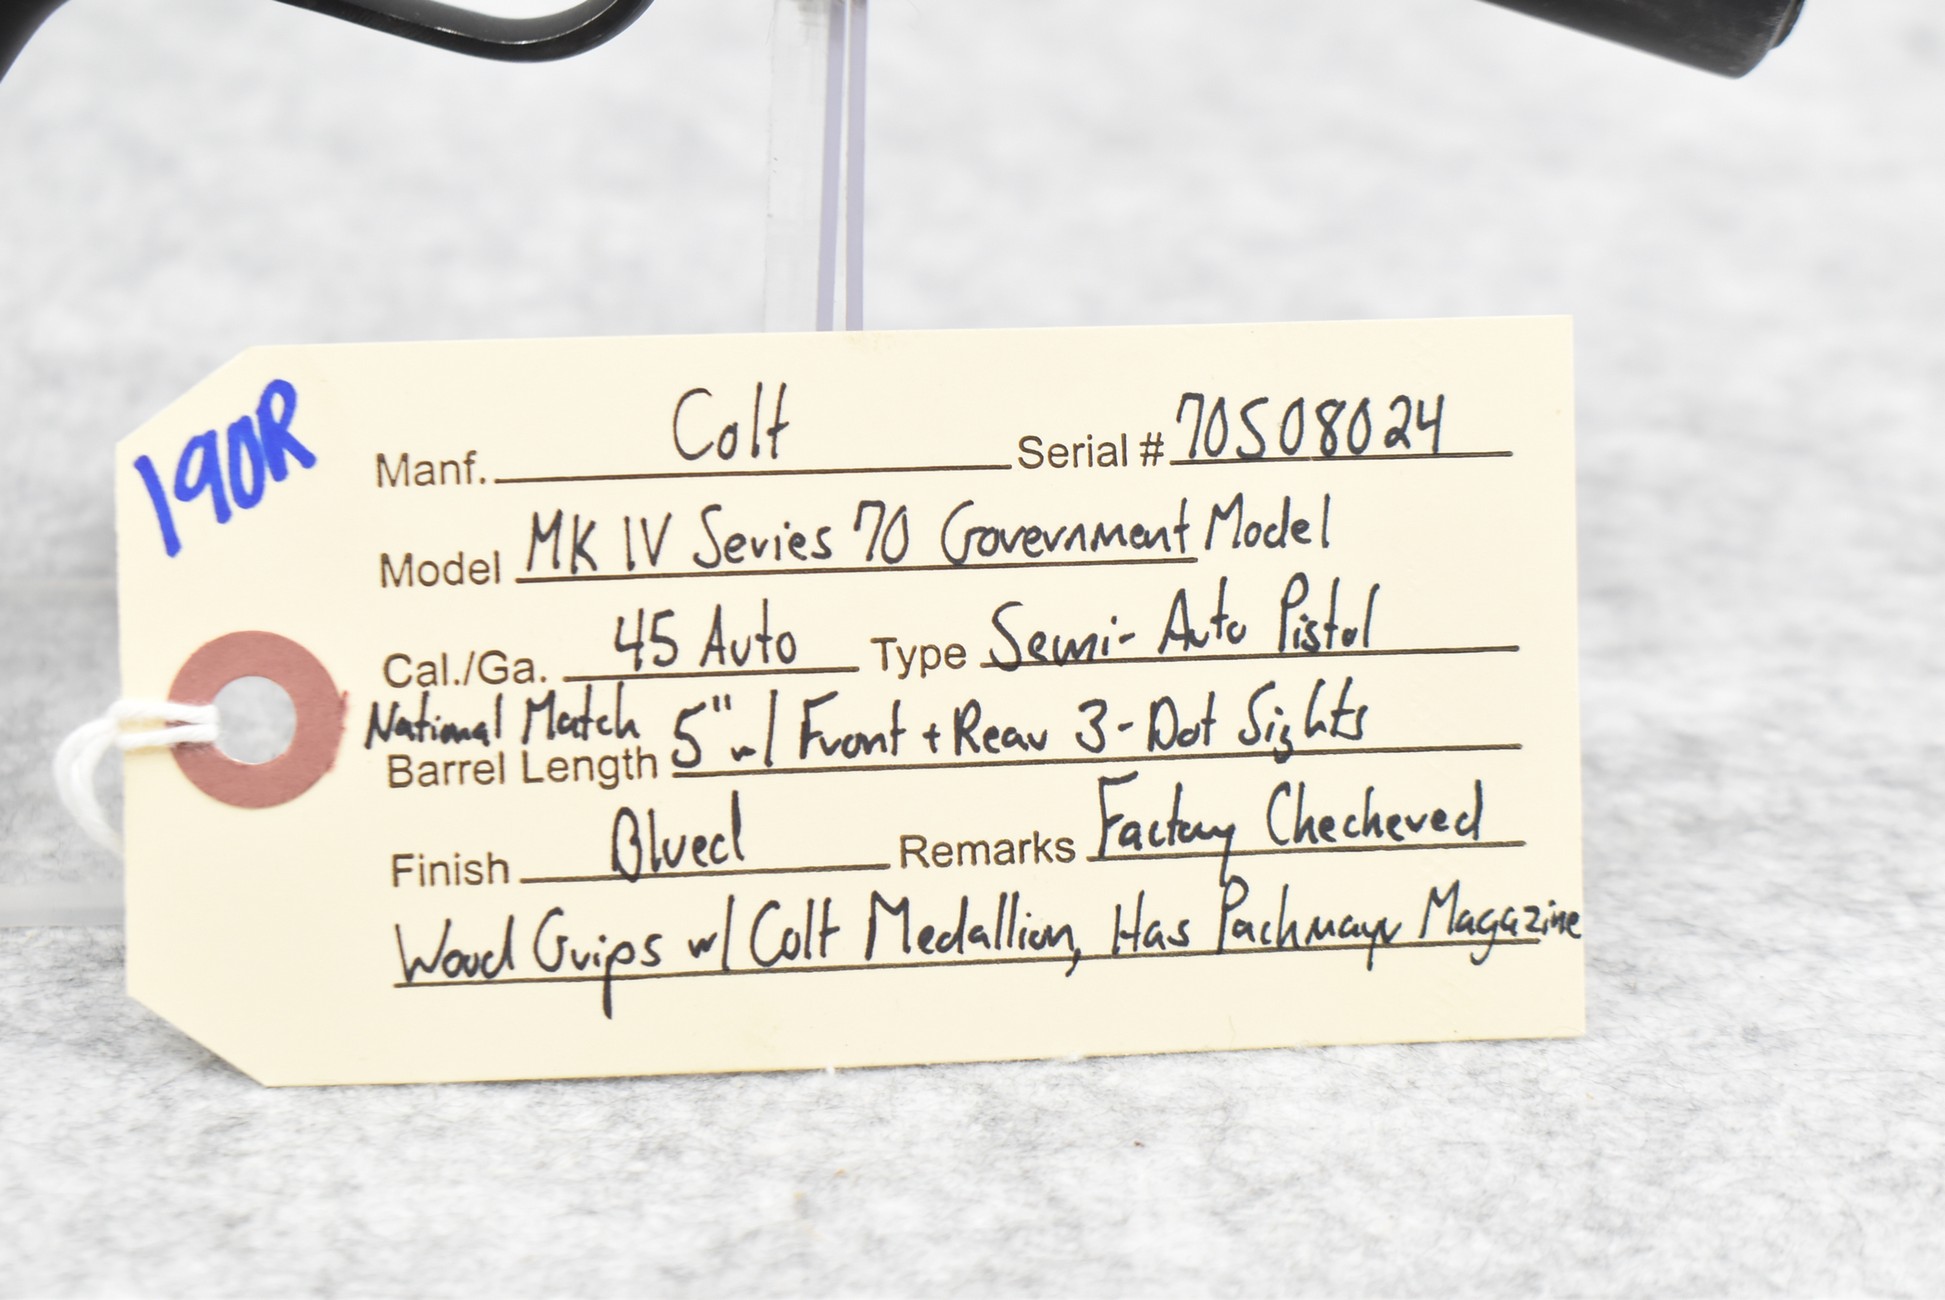 190R
Manf. Colt Serial # 70S08024
Model MK IV Series 70 Government Model
Cal./Ga. 45 Auto Type Semi-Auto Pistol
National Match
Barrel Length 5" w/ Front + Rear 3-Dot Sights
Finish Blued Remarks Factory Checkered
Wood Grips w/ Colt Medallion, Has Pachmayr Magazine